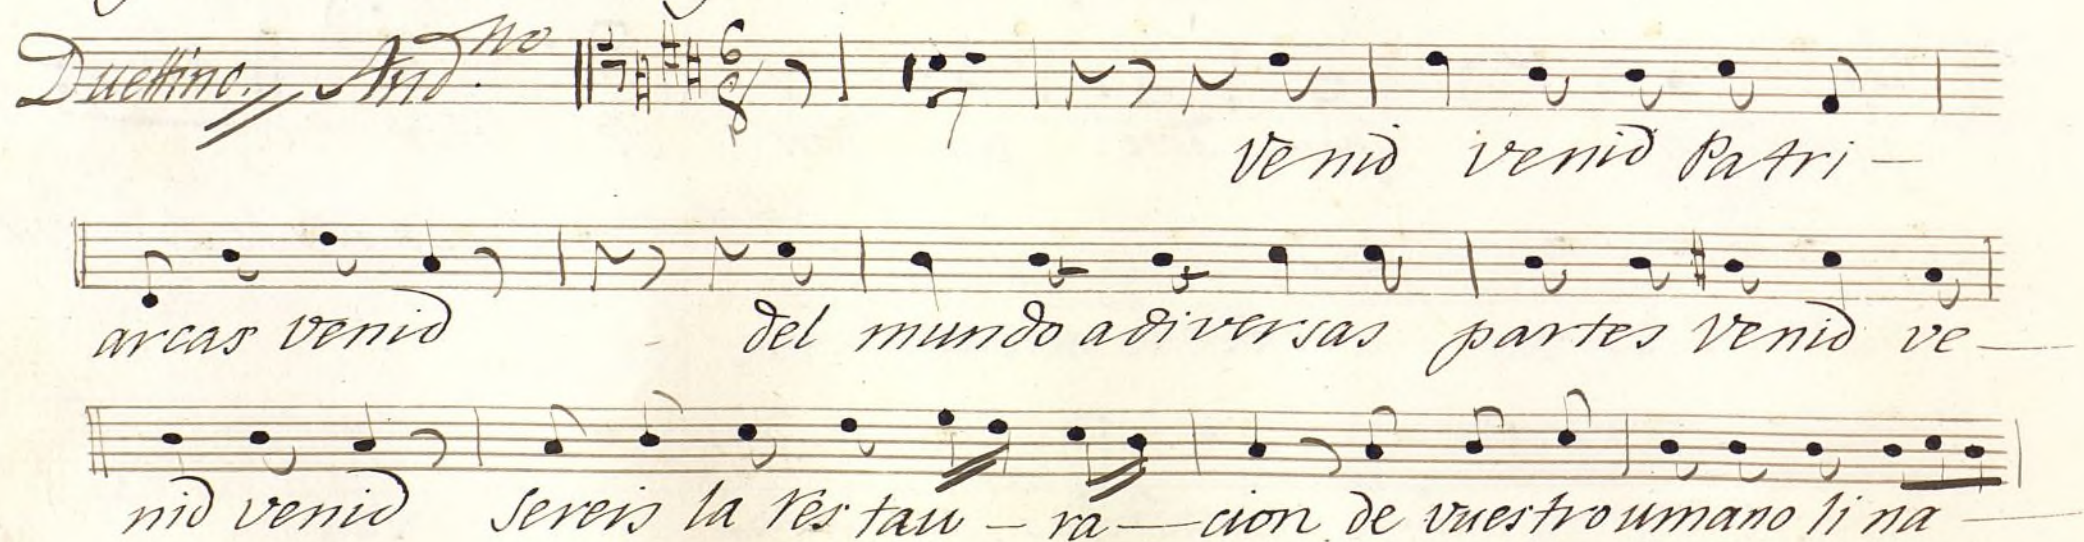 Duettino. And.no 6/8 7
Venid venid Patri-
arcas venid del mundo a diversas partes venid ve-
nid venid sereis la res tau-ra-cion de vuestro umano lina-